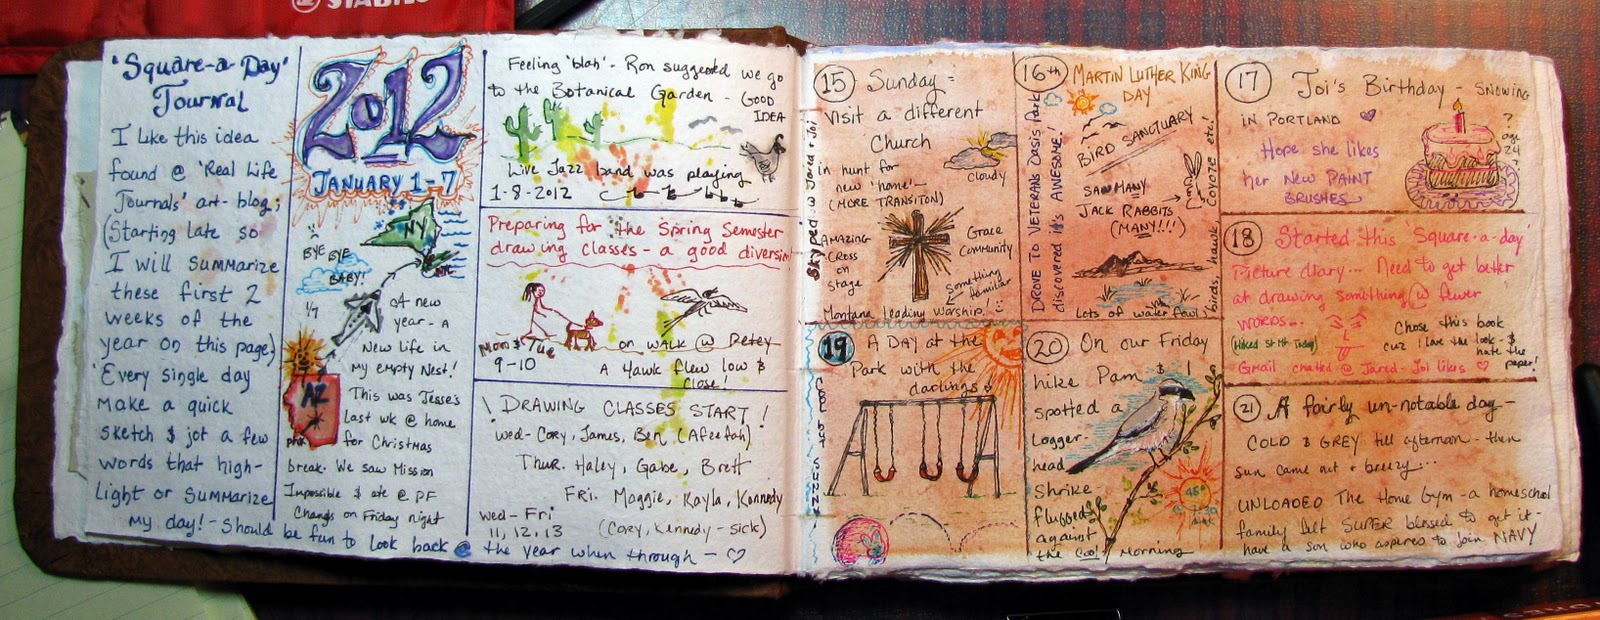 STABILO
'Square-a-Day'
Journal
I like this idea
found @ 'Real Life
Journals' art-blog;
(Starting late so
I will summarize
these first 2
weeks of the
year on this page.)
'Every single day
make a quick
sketch & jot a few
words that high-
light or summarize
my day! - Should be fun to look back @
the year when through - ♡
2012
JANUARY 1-7
NY
NYC
BYE BYE
BABY!
1/7
A new
year - a
New life in
my empty Nest!
AZ
PHX
This was Jesse's
Last wk @ home
for Christmas
break. We saw Mission
Impossible & ate @ PF
Changs on Friday night
Feeling 'blah' - Ron suggested we go
to the Botanical Garden - GOOD
IDEA
Live Jazz band was playing
1-8-2012
Preparing for the Spring Semester
drawing classes - a good diversion
Mon & Tue
9-10
on walk @ Petey
A Hawk flew low &
close!
! DRAWING CLASSES START !
Wed - Cory, James, Ben (Afeefah)
Thur. Haley, Gabe, Brett
Fri. Maggie, Kayla, Kennedy
Wed - Fri
11, 12, 13
(Cory, Kennedy - sick)
Skyped w Jared & Joi
15 Sunday =
Visit a different
Church
in hunt for
new 'home' -
(MORE TRANSITON)
cloudy
AMAZING
CROSS
on
stage
Grace
Community
Something
familiar
Montana leading worship!
16th MARTIN LUTHER KING
DAY
DROVE TO VETERANS OASIS PARK
discovered it's AWESOME!
BIRD SANCTUARY -
SAW MANY
JACK RABBITS
(MANY!!!)
Lots of water fowl
birds, hawk, Coyote etc!
17 Joi's Birthday - SNOWING
IN PORTLAND
Hope she likes
her NEW PAINT
BRUSHES
?
18 Started this 'Square-a-day'
Picture diary... Need to get better
at drawing something w fewer
WORDS...
(Hiked St Mtn Today)
Chose this book
cuz I love the look - &
hate the
paper!
Gmail chatted @ Jared - Joi likes ♡
19 A Day at the
Park with the
darlings
20 On our Friday
hike Pam & I
spotted a
Logger-
head
Shrike -
fluffed
against
the cool Morning
45°
21 A fairly un-notable day -
COLD & GREY till afternoon - then
sun came out & breezy...
UNLOADED The Home Gym - a homeschool
family felt SUPER blessed to get it -
have a son who asperes to join NAVY